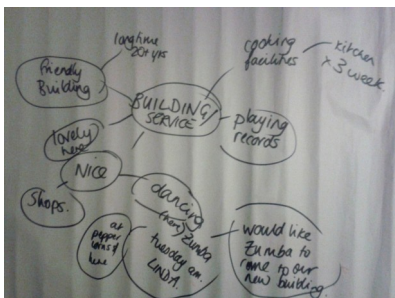 longtime
20+ yrs
friendly
Building
cooking
facilities
kitchen
x 3 week.
BUILDING/
SERVICE
playing
records
lovely
here
Nice
Shops.
dancing
(here) Zumba
tuesday am.
LINDA.
at
pepper
here
would like
Zumba to
come to our
new building.